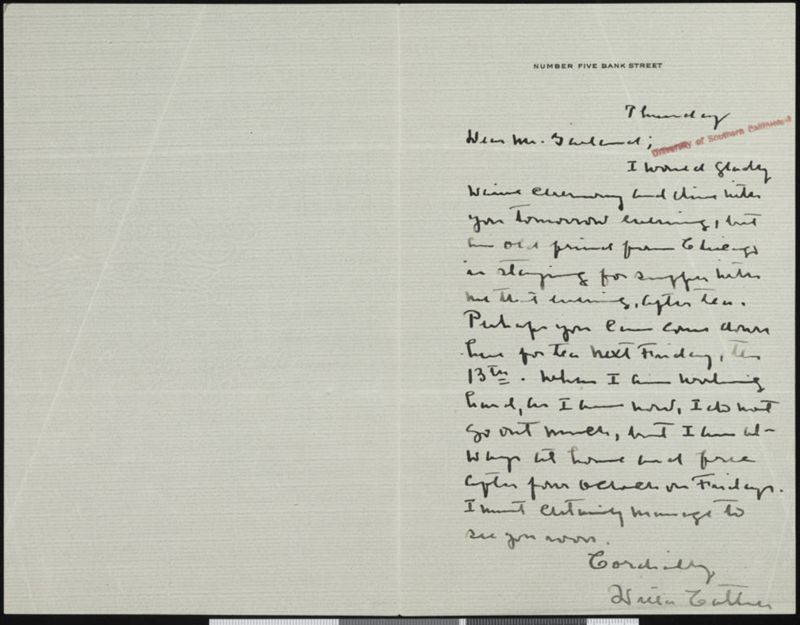 NUMBER FIVE BANK STREET
Thursday
University of Southern California
Dear Mr. Garland;
I would gladly
waive ceremony and dine with
you tomorrow evening, but
an old friend from Chicago
is staying for supper with
me that evening, after tea.
Perhaps you can come down
here for tea next Friday, the
13th. When I am working
hard, as I am now, I do not
go out much, but I am al-
ways at home and free
after four o'clock on Fridays.
I must certainly manage to
see you soon.
Cordially
Willa Cather